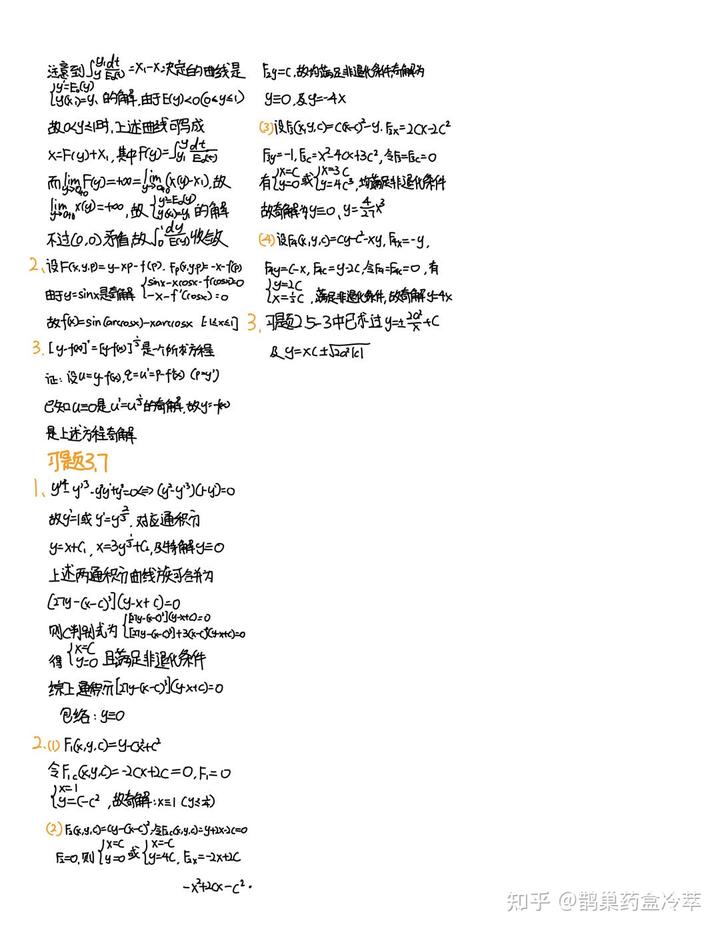 注意到∫_{y_1}^{y} dt/E_0(t) = x_1-x_2决定的曲线是
{y'=E_0(y) y(x_1)=y_1 的解, 由于E(y)<0(0<y≤1)
故0<y≤1时, 上述曲线可写成
x=F(y)+x_1, 其中F(y)=∫_{y_1}^{y} dt/E_0(t)
而lim F(y)=+∞=lim(x(y)-x_1), 故
lim x(y)=+∞, 故{y'=E_0(y) y(x_1)=y_1 的解
不过(0,0)矛盾 故∫_0^1 dy/E(y) 收敛
2、设F(x,y,p)=y-xp-f(p). F_p(x,y,p)=-x-f'(p)
由于y=sinx是奇解 {sinx-xcosx-f(cosx)=0 -x-f'(cosx)=0
故f(x)=sin(arccosx)-xarccosx [-1≤x≤1]
3. [y-f(x)]'=[y-f(x)]^{1/3}是一个所求方程
证: 设u=y-f(x), q=u'=p-f'(x) (p=y')
已知u≡0是u'=u^{1/3}的奇解, 故y=f(x)
是上述方程奇解
习题3.7
1、y'^4-y'^3-y²y'+y²=0⇔(y²-y'^3)(1-y')=0
故y'=1或y'=y^{2/3}, 对应通积分
y=x+C_1, x=3y^{1/3}+C_2, 及特解y≡0
上述两通积分曲线族可合并为
[27y-(x-c)³](y-x+c)=0
则C判别式为{[27y-(x-c)³](y-x+c)=0 [27y-(x-c)³]+3(x-c)²(y-x+c)=0
得{x=C y=0 且满足非退化条件
综上通积分[27y-(x-c)³](y-x+c)=0
包络: y≡0
2.(1) F_1(x,y,c)=y-cx²+c²
令F_{1c}(x,y,c)=-2cx+2c=0, F_1=0
{x=1 y=C-C², 故奇解: x≡1 (y≤¼)
(2) F_2(x,y,c)=cy-(x-c)², 令F_{2c}(x,y,c)=y+2x-2c=0
F_2=0, 则{x=C y=0 或{x=-C y=4C, F_{2x}=-2x+2C
-x²+2cx-c².
F_{2y}=C, 故均满足非退化条件奇解为
y≡0, 及y=-4x
(3) 设F_3(x,y,c)=c(x-c)²-y. F_{3x}=2cx-2c²
F_{3y}=-1, F_{3c}=x²-4cx+3c², 令F_3=F_{3c}=0
有{x=C y=0 或{x=3C y=4C³, 均满足非退化条件
故奇解为y≡0, y=4/27x³
(4) 设F_4(x,y,c)=cy-c²-xy, F_{4x}=-y,
F_{4y}=c-x, F_{4c}=y-2c, 令F_4=F_{4c}=0, 有
{y=2C x=½C, 满足非退化条件, 故奇解y=4x
3. 习题2.5-3中已求过y=±2a²/x+C
及y=xC±√2a²|c|
知乎 @鹊巢药盒冷萃